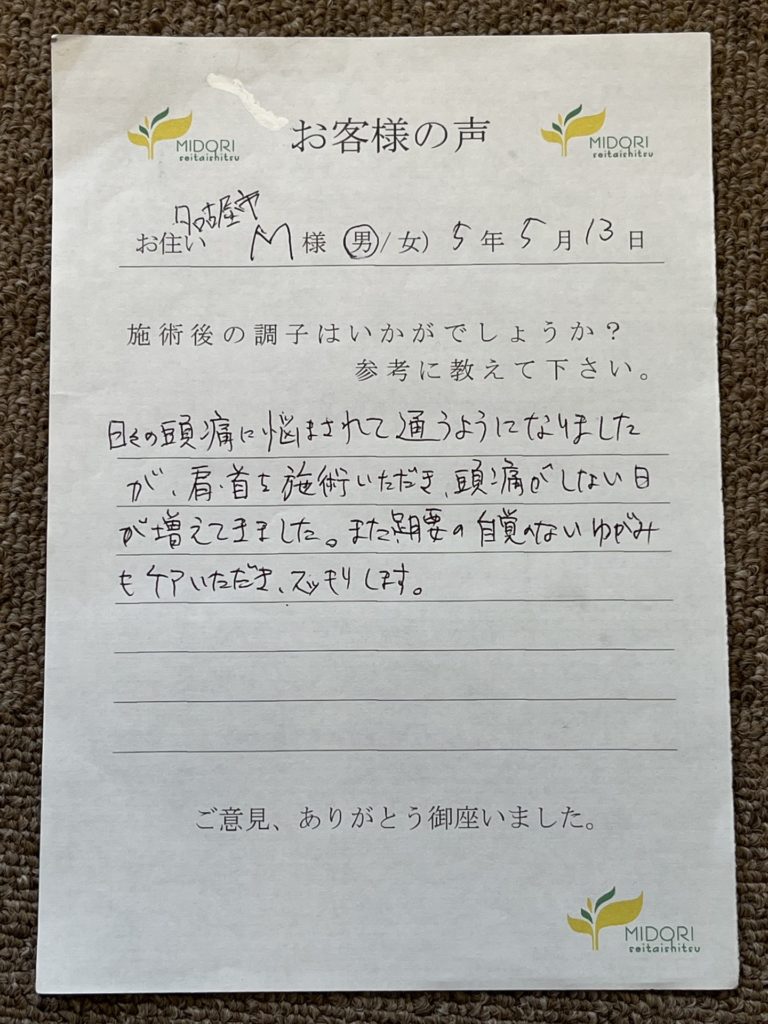 お客様の声
MIDORI
seitaishitsu
MIDORI
seitaishitsu
名古屋市
お住い M 様 男/女) 5 年 5 月 13 日
施術後の調子はいかがでしょうか?
参考に教えて下さい。
日々の頭痛に悩まされて通うようになりました
が、肩・首を施術いただき、頭痛がしない日
が増えてきました。また足腰の自覚のないゆがみ
もケアいただき、スッキリします。
ご意見、ありがとう御座いました。
MIDORI
seitaishitsu